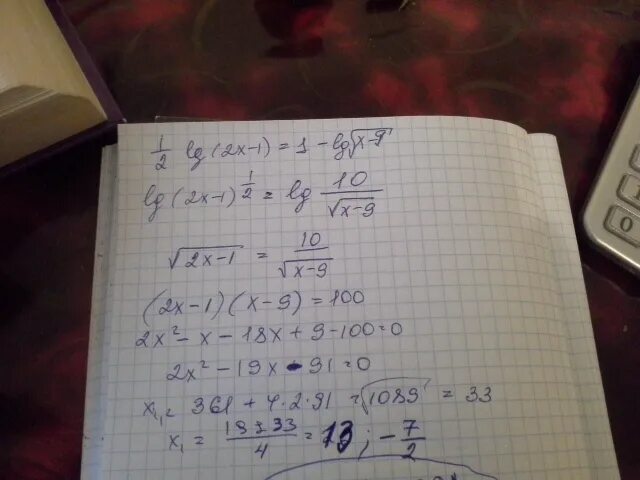 1/2 lg(2x-1) = 1 - lg√(x-9)
lg(2x-1)^(1/2) = lg 10/√(x-9)
√(2x-1) = 10/√(x-9)
(2x-1)(x-9) = 100
2x² - x - 18x + 9 - 100 = 0
2x² - 19x - 91 = 0
x₁,₌ 361 + 4·2·91 = √1089 = 33
x₁ = (19±33)/4 = 13 ; -7/2
0